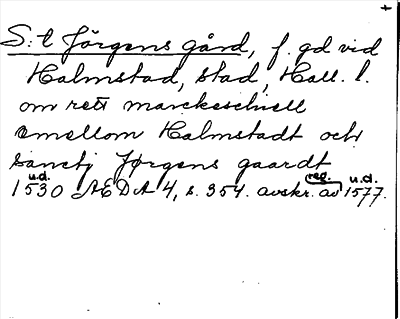 S:t Jörgens gård, f. gd vid
Halmstad, stad, Hall. l.
om rett marckeschiell
emellom Halmstadt och
sanctj Jørgens gaardt
u.d. reg. u.d.
1530 ÆDA 4, s. 354. avskr. av 1577.